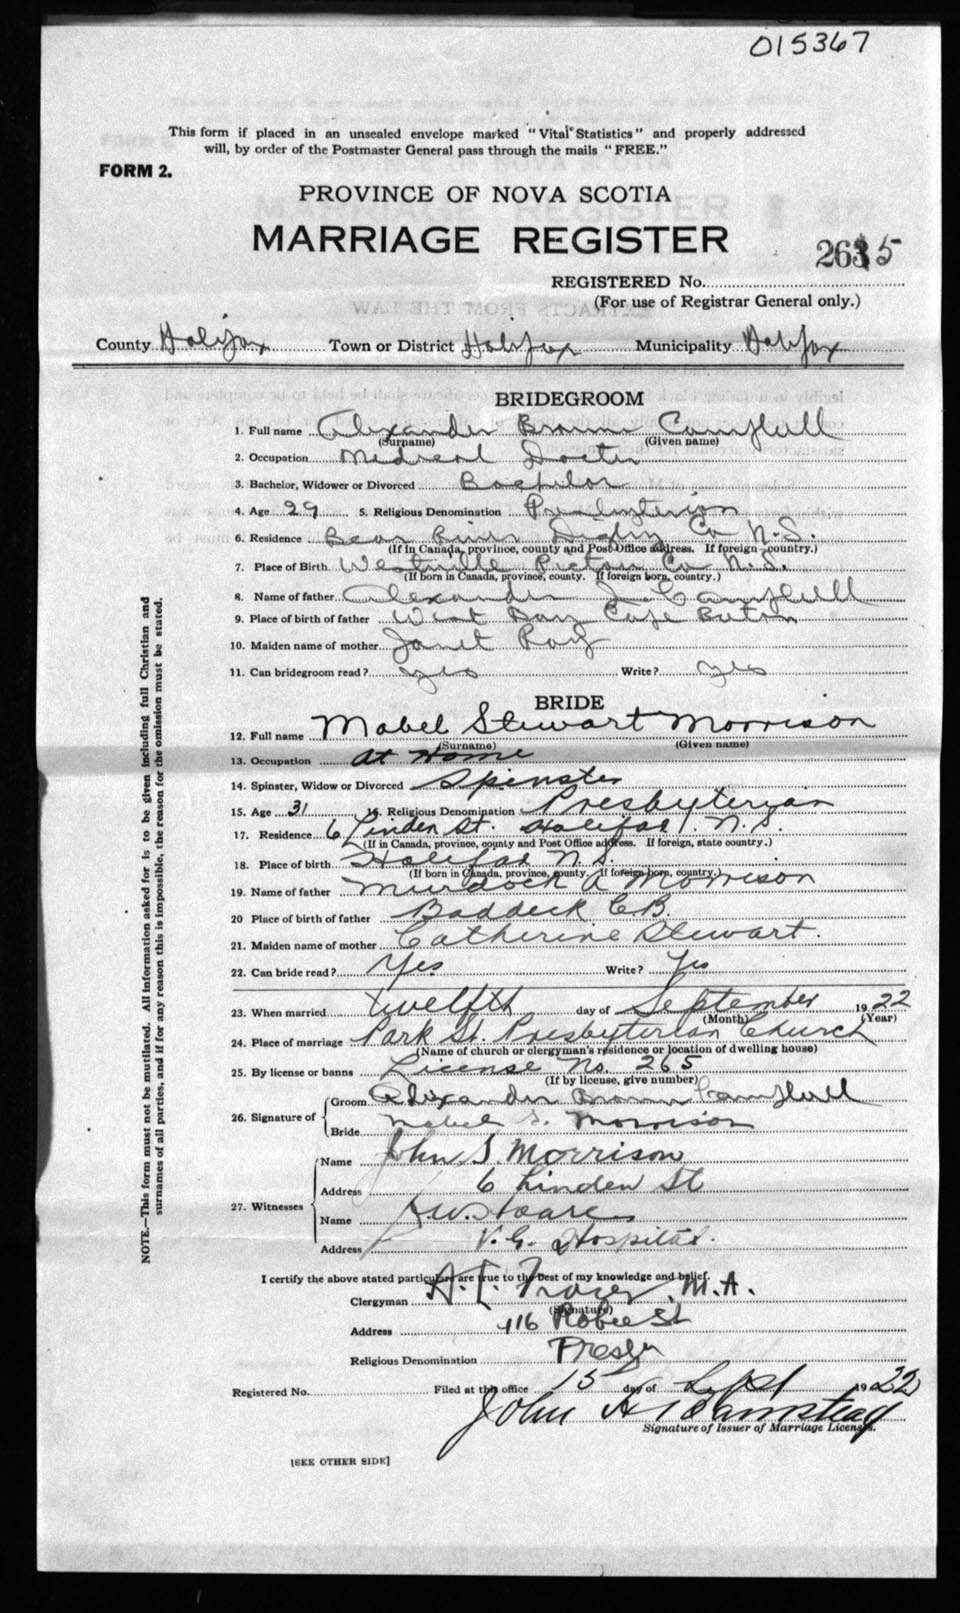 015367
This form if placed in an unsealed envelope marked "Vital Statistics" and properly addressed
will, by order of the Postmaster General pass through the mails "FREE."
FORM 2.
PROVINCE OF NOVA SCOTIA
MARRIAGE REGISTER
2635
REGISTERED No.
(For use of Registrar General only.)
County Halifax Town or District Halifax Municipality Halifax
BRIDEGROOM
1. Full name Alexander Brown Campbell
(Surname) (Given name)
2. Occupation Medical Doctor
3. Bachelor, Widower or Divorced Bachelor
4. Age 29 5. Religious Denomination Presbyterian
6. Residence Bear River Digby Co N.S.
(If in Canada, province, county and Post Office address. If foreign country.)
7. Place of Birth Westville Pictou Co N.S.
(If born in Canada, province, county. If foreign born, country.)
8. Name of father Alexander J. Campbell
9. Place of birth of father West Bay Cape Breton
10. Maiden name of mother Janet Roy
11. Can bridegroom read? yes Write? yes
BRIDE
12. Full name Mabel Stewart Morrison
(Surname) (Given name)
13. Occupation at Home
14. Spinster, Widow or Divorced Spinster
15. Age 31 16. Religious Denomination Presbyteryan
17. Residence 6 Linden St. Halifax N.S.
(If in Canada, province, county and Post Office address. If foreign, state country.)
18. Place of birth Halifax N.S.
(If born in Canada, province, county. If foreign born, country.)
19. Name of father Murdock A Morrison
20 Place of birth of father Baddeck C.B.
21. Maiden name of mother Catherine Stewart.
22. Can bride read? Yes Write? Yes
23. When married twelfth day of September 1922
(Month) (Year)
24. Place of marriage Park St. Presbyterian Church
(Name of church or clergyman's residence or location of dwelling house)
25. By license or banns License No. 265
(If by license, give number)
26. Signature of Groom Alexander Brown Campbell
Bride Mabel S. Morrison
27. Witnesses Name John S. Morrison
Address 6 Linden St
Name
Address V.G. Hospital.
I certify the above stated particulars are true to the best of my knowledge and belief.
Clergyman M.A.
(Signature)
Address 116 Robie St
Religious Denomination Presby
Registered No. Filed at this office 15 day of Sept 1922
John H Barnstead
Signature of Issuer of Marriage Licenses.
[SEE OTHER SIDE]
NOTE.—This form must not be mutilated. All information asked for is to be given including full Christian and
surnames of all parties, and if for any reason this is impossible, the reason for the omission must be stated.